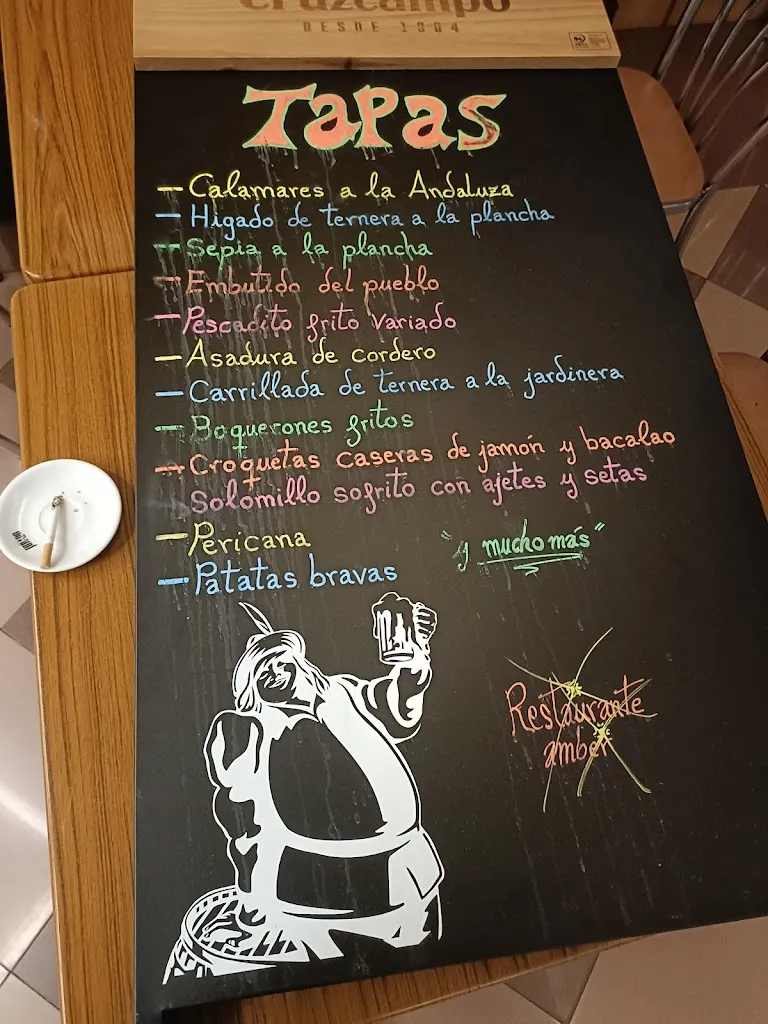 Cruzcampo
DESDE 1904
TAPAS
– Calamares a la Andaluza
– Higado de ternera a la plancha
– Sepia a la plancha
– Embutido del pueblo
– Pescadito frito variado
– Asadura de cordero
– Carrillada de ternera a la jardinera
– Boquerones fritos
– Croquetas caseras de jamón y bacalao
Solomillo sofrito con ajetes y setas
– Pericana
"y mucho más"
– Patatas bravas
Restaurante
amber